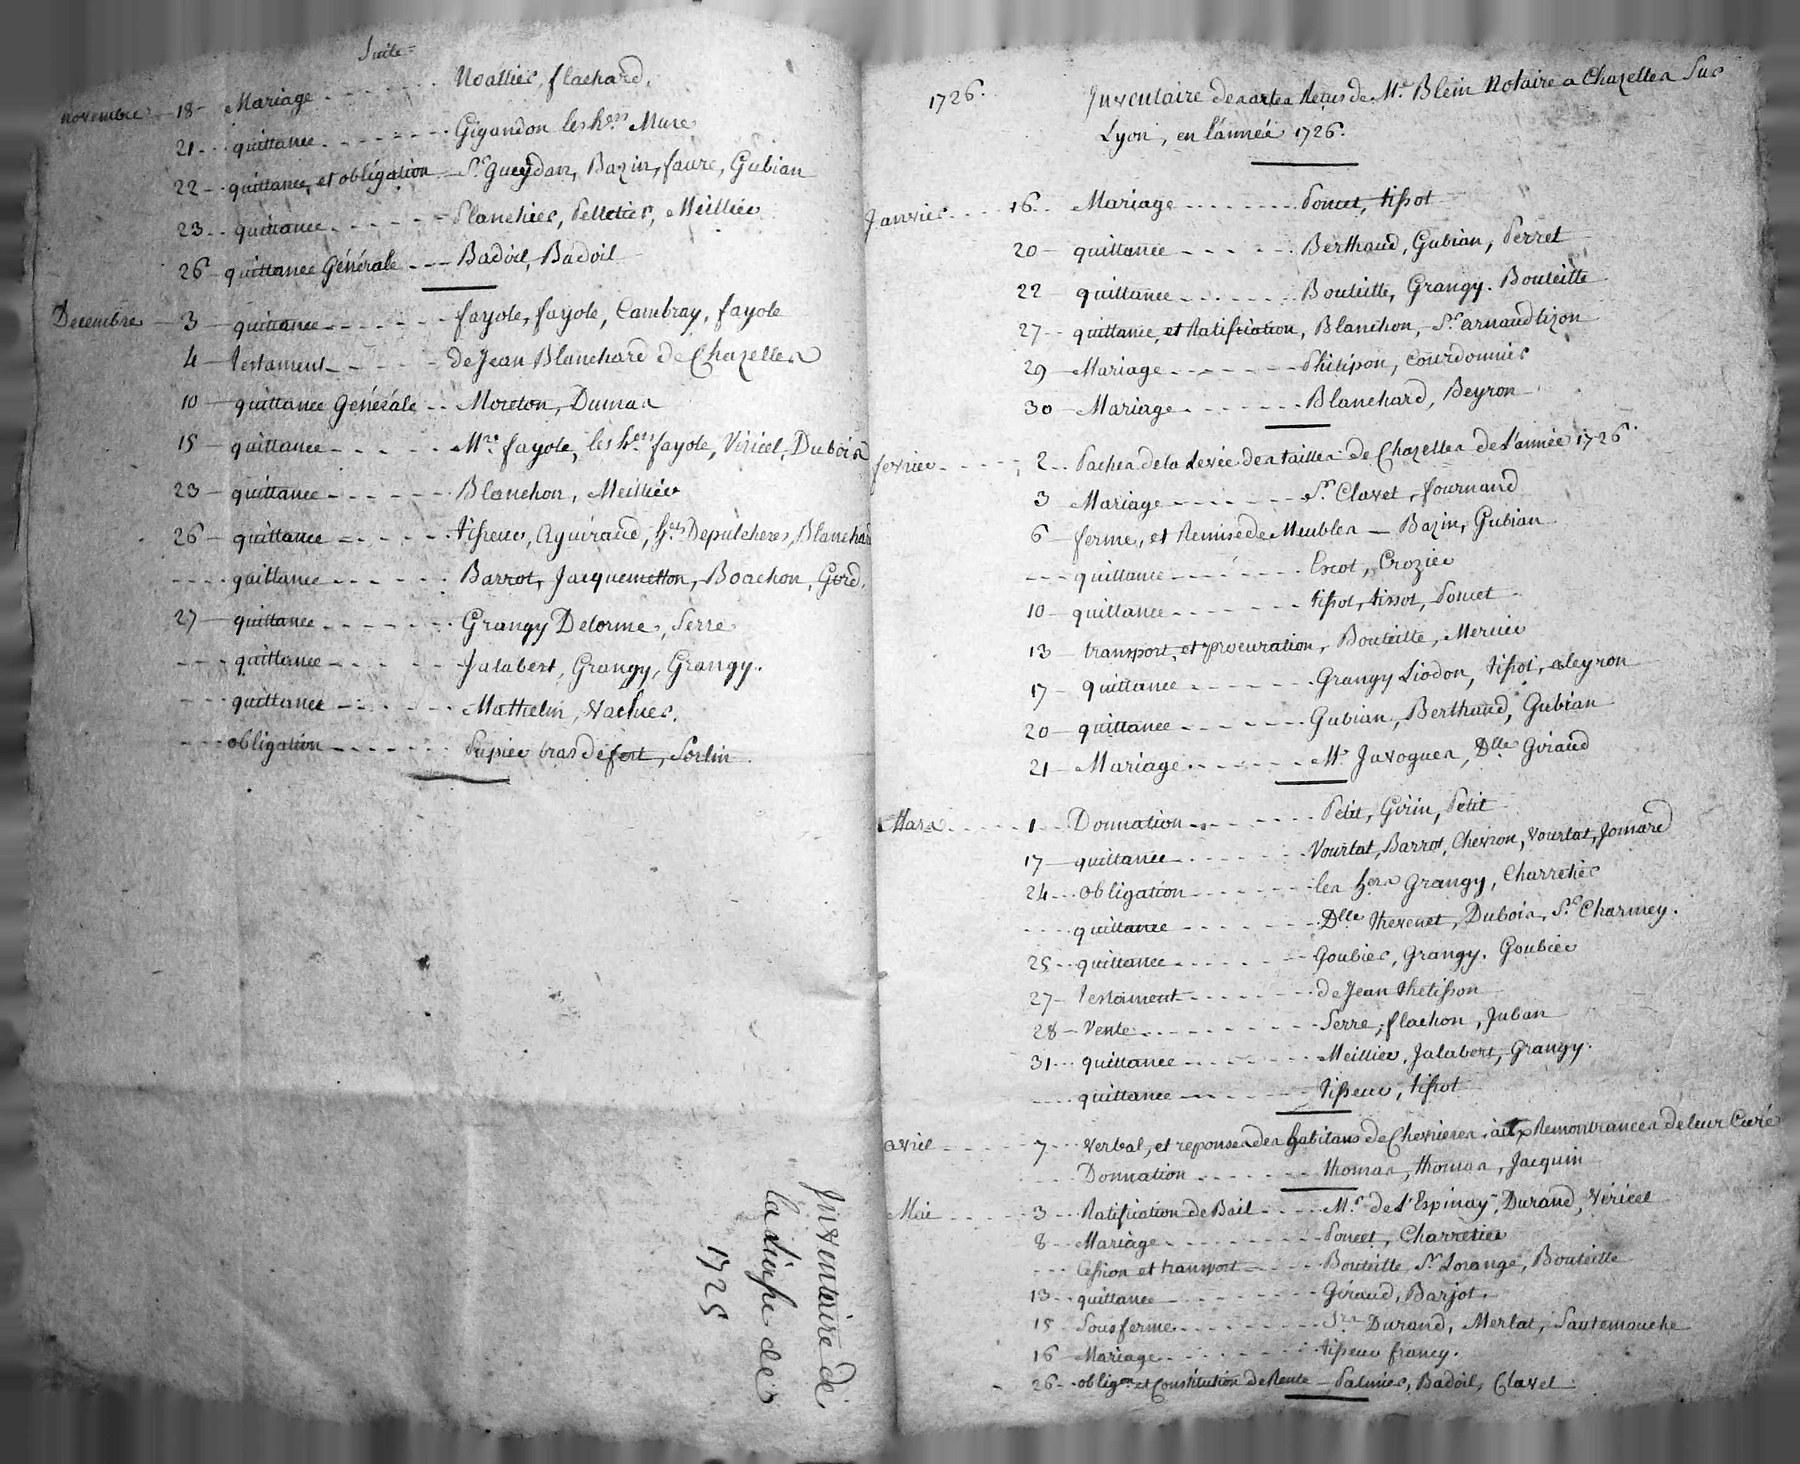 Suite =
novembre - 18 - Mariage - - - - - - - Noallier, flachard.
21 - - quittance - - - - - - - Gigandon les h.ers Mure
22 - - quittance, et obligation - S.r Gueydan, Bazin, faure, Gubian
23 - - quittance - - - - - - - Planchier, Pelletier, Meillier
26 - quittance Générale - - - Badoil, Badoil
Decembre - 3 - quittance - - - - - - - fayole, fayole, Cambray, fayole
4 - testament - - - - - de Jean Blanchard de Chazelles
10 - quittance Générale - - Moreton, Dumas
15 - quittance - - - - - M.re fayole, les h.ers fayole, Viricel, Dubois
23 - quittance - - - - - - Blanchon, Meillier
26 - quittance - - - - - tisseur, Aguiraud, h.ers Depulcheres, Blanchard
- - - - quittance - - - - - - Barrot, Jacquemetton, Boachon,
27 - quittance - - - - - - - Grangy Delorme, Serre
- - - quittance - - - - - - Jalabert, Grangy, Grangy.
- - - quittance - - - - - - Mathelin, Vacher.
- - - obligation - - - - - - Pupier bras de fort, Sorlin.
Inventaire de
la Liasse de
1725
1726. Inventaire des actes Reçus de M.e Blein Notaire a Chazelles Sur
Lyon, en l'année 1726.
Janvier - - - - 16 - - Mariage - - - - - - - Poncet, tissot
20 - quittance - - - - - - Berthaud, Gubian, Perret
22 - quittance - - - - - - Bouteille, Grangy. Bouteille
27 - - quittance, et Ratification, Blanchon, S.r arnaud tizon
29 - Mariage - - - - - - - Philipon, Courdonnier
30 - Mariage - - - - - - - Blanchard, Beyron
fevrier - - - - - 2 - - Paches de la Levée des tailles de Chazelles de l'année 1726.
3 Mariage - - - - - - - S.r Clavet, fournand
6 - ferme, et Remise de Meubles - Bazin, Gubian
- - - quittance - - - - - - Escot, Crozier
10 - quittance - - - - - - - tissot, tissot, Poncet
13 - transport, et procuration, Bouteille, Mercier
17 - quittance - - - - - - - Grangy Liodon, tissot, Meyron
20 - quittance - - - - - - - Gubian, Berthaud, Gubian
21 - Mariage - - - - - - - M.r Javogues, D.lle Giraud
Mars - - - - - 1 - - Donnation - - - - - - - Petit, Girin, Petit
17 - quittance - - - - - - - Vourlat, Barrot, Chevron, Vourlat, Jomard
24 - - obligation - - - - - - - les h.ers Grangy, Charretier
- - - - quittance - - - - - - - D.lle thevenet, Dubois, S.r Charmey.
25 - - quittance - - - - - - - Goubier, Grangy. Goubier
27 - testament - - - - - - - de Jean thelisson
28 - Vente - - - - - - - - - Serre, flachon, Juban
31 - - quittance - - - - - - - Meillier, Jalabert, Grangy.
- - - - quittance - - - - - - - tisseur, tissot
avril - - - - - 7 - - Verbal, et reponses des habitans de Chevrieres aux Remontrances de leur Curé
- - - - Donnation - - - - - - - thomas, thomas, Jacquin
Mai - - - - - 3 - - Ratification de Bail - - - - M.r de L'Espinay, Durand, Viricel
8 - - Mariage - - - - - - - - Poncet, Charretier
- - - Cession et transport - - - - Bouteille, S.r Lorange, Bouteille
13 - - quittance - - - - - - - - Géraud, Barjot.
15 - Sousferme - - - - - - - - S.rs Durand, Merlat, Sautemouche
16 - Mariage - - - - - - - - tisseur francy.
26 - - oblig.on et Constitution de Rente - Palmier, Badoil, Clavel